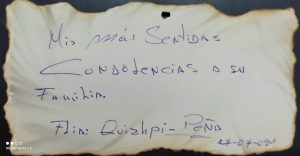 Mis más Sentidas
Condolencias a su
Familia.
Flia: Quizhpi - Peña
27-07-021